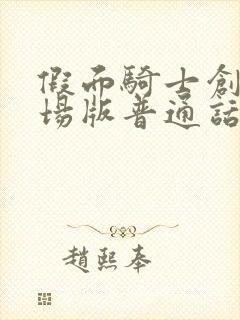 假面騎士創
場版普通話
趙熙奉